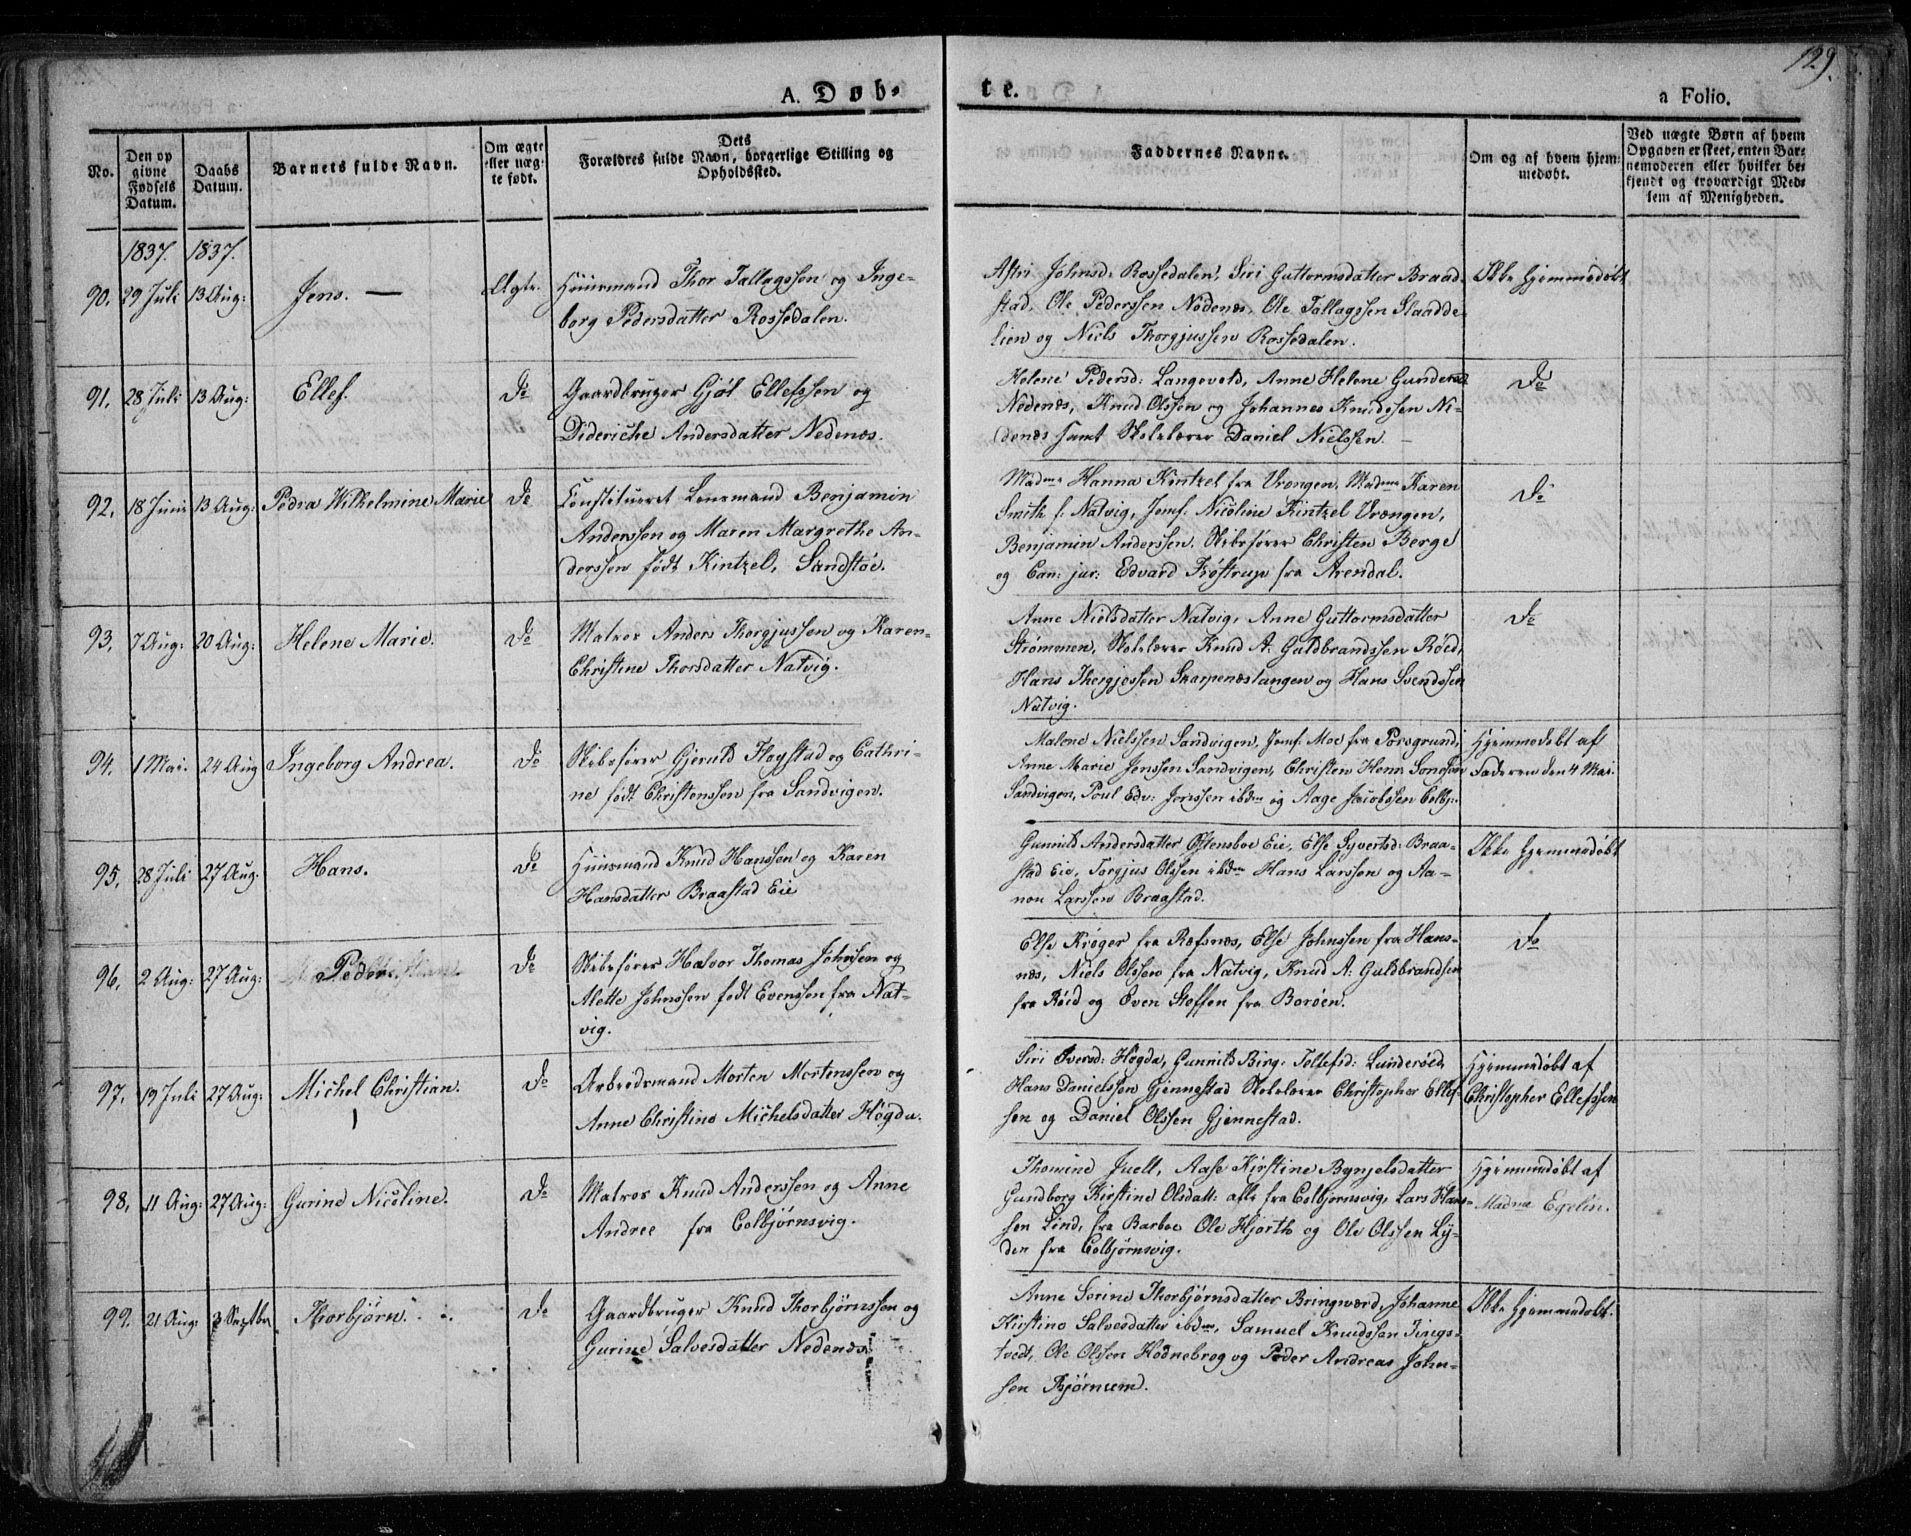 129.
A. Døb-
te.
a Folio.
No.
Den op
givne
Fødsels
Datum.
Daabs
Datum.
Barnets fulde Navn.
Om ægte
eller uæg-
te født.
Dets
Forældres fulde Navn, borgerlige Stilling og
Opholdssted.
Faddernes Navne.
Om og af hvem hjem-
medøbt.
Ved uægte Børn af hvem
Opgaven er skeet, enten Bar-
nemoderen eller hvilket be-
kjendt og troværdigt Med-
lem af Menigheden.
1837. 1837.
90. 29 Juli 13 Aug: Jens. — Ægte. Huusmand Thor Tallagssen og Inge-
borg Pedersdatter Rossedalen.
Astri Johnsd: Rossedalen, Siri Guttormsdatter Braad-
stad, Ole Pederssen Nedenæs, Ole Tallagssen Slaadde-
lien og Niels Thorgjussen Rossedalen.
Ikke hjemmedøbt
91. 28 Juli 13 Aug: Ellef. Do Gaardbruger Gjøl Ellefssen og
Dideriche Andersdatter Nedenæs.
Helene Pedersd: Langevold, Anne Helene Gundersd
Nedenæs, Knud Olssen og Johannes Knudssen Ne-
denæs samt Skolelærer Daniel Nielssen. —
Do
92. 18 Juni 13 Aug: Pedra Wilhelmine Marie Do Constitueret Lensmand Benjamin
Anderssen og Maren Margrethe An-
derssen født Kintzel, Sandstøe.
Madme Hanna Kintzel fra Vrengen, Madme Karen
Smith f: Natvig, Jomf: Nicoline Kintzel Vrængen,
Benjamin Anderssen, Skibsfører Christen Berge
og Can: jur: Edvard Frøstrup fra Arendal.
Do
93. 7 Aug: 20 Aug: Helene Marie. Do Matros Anders Thorgjussen og Karen-
Christine Thorsdatter Natvig.
Anne Nielsdatter Natvig, Anne Guttormsdatter
Strømmen, Skolelærer Knud A: Guldbrandssen Røed,
Hans Thorgjessen Skarpenæstangen og Hans Svendssen
Natvig.
Do
94. 1 Mai. 24 Aug Ingeborg Andrea. Do Skibsfører Gjeruld Floystad og Cathri-
ne født Christenssen fra Sandvigen.
Malene Nielssen Sandvigen, Jomf: Moe fra Porsgrund,
Anne Marie Jenssen Sandvigen, Christen Henr:
Sandvigen, Poul Edv: Jenssen ibdm og Aage Jacobssen Colbj:
Hjemmedøbt af
Faderen den 4 Mai.
95. 28 Juli 27 Aug: Hans. Do Huusmand Knud Hanssen og Karen
Hansdatter Braastad Eie
Gunnild Andersdatter Østensboe Eie, Else Syvertsd: Braa-
stad Eie, Torgjus Olssen ibdm Hans Larssen og Aa-
non Larssen Braastad.
Ikke hjemmedøbt
96. 2 Aug: 27 Aug: Peder Do Skibsfører Halvor Thomas Johnsen og
Mette Johnssen født Evenssen fra Nat-
vig.
Else Krøger fra Refsnæs, Else Johnssen fra Hans-
næs, Niels Olssen fra Natvig, Knud A: Guldbrandsen
fra Røed og Even Steffen fra Borøen.
Do
97. 19 Juli 27 Aug: Michel Christian. Do Arbeidsmand Morten Mortenssen og
Anne Christine Michelsdatter Høgda.
Siri Iversd: Høgda, Gunnild Birg: Tollefsd: Lunderøed,
Hans Danielssen Gjennestad Skolelærer Christopher Ellef-
sen og Daniel Olssen Gjennestad.
Hjemmedøbt af
Christopher Ellefssen
98. 11 Aug: 27 Aug: Gurine Nicoline. Do Matros Knud Anderssen og Anne
Andree fra Colbjørnsvig.
Thomine Juell, Aase Kirstine Bynjelsdatter
Gundborg Kirstine Olsdatt: alle fra Colbjørnsvig, Lars Hans-
sen Lind, fra Barboe Ole Hjorth og Ole Olssen Ly-
den fra Colbjørnsvig.
Hjemmedøbt af
Madme Egelin.
99. 21 Aug: 3 Septbr Thorbjørn. Do Gaardbruger Knud Thorbjørnssen og
Gurine Salvesdatter Nedenæs.
Anne Sorine Thorbjørnsdatter Bringsværd, Johanne
Kirstine Salvesdatter ibdm, Samuel Knudssen Tings-
tvedt, Ole Olssen Hodnebrog og Peder Andreas John-
sen Bjørnum.
Ikke hjemmedøbt.